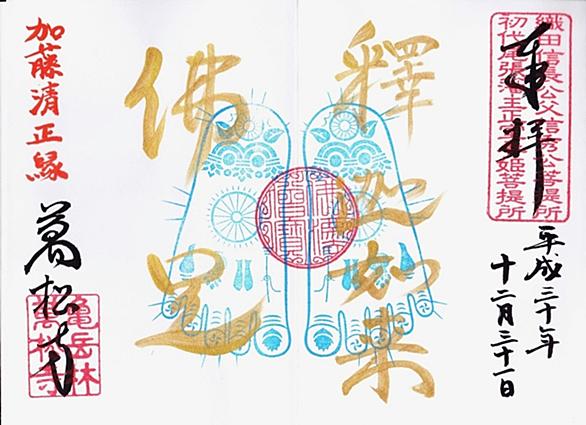 奉拝
織田信長公父信秀公菩提所
初代尾張藩主正室春姫菩提所
平成三十年
十二月三十一日
釋迦如来
佛足
加藤清正縁
萬松寺
亀岳林
萬松寺